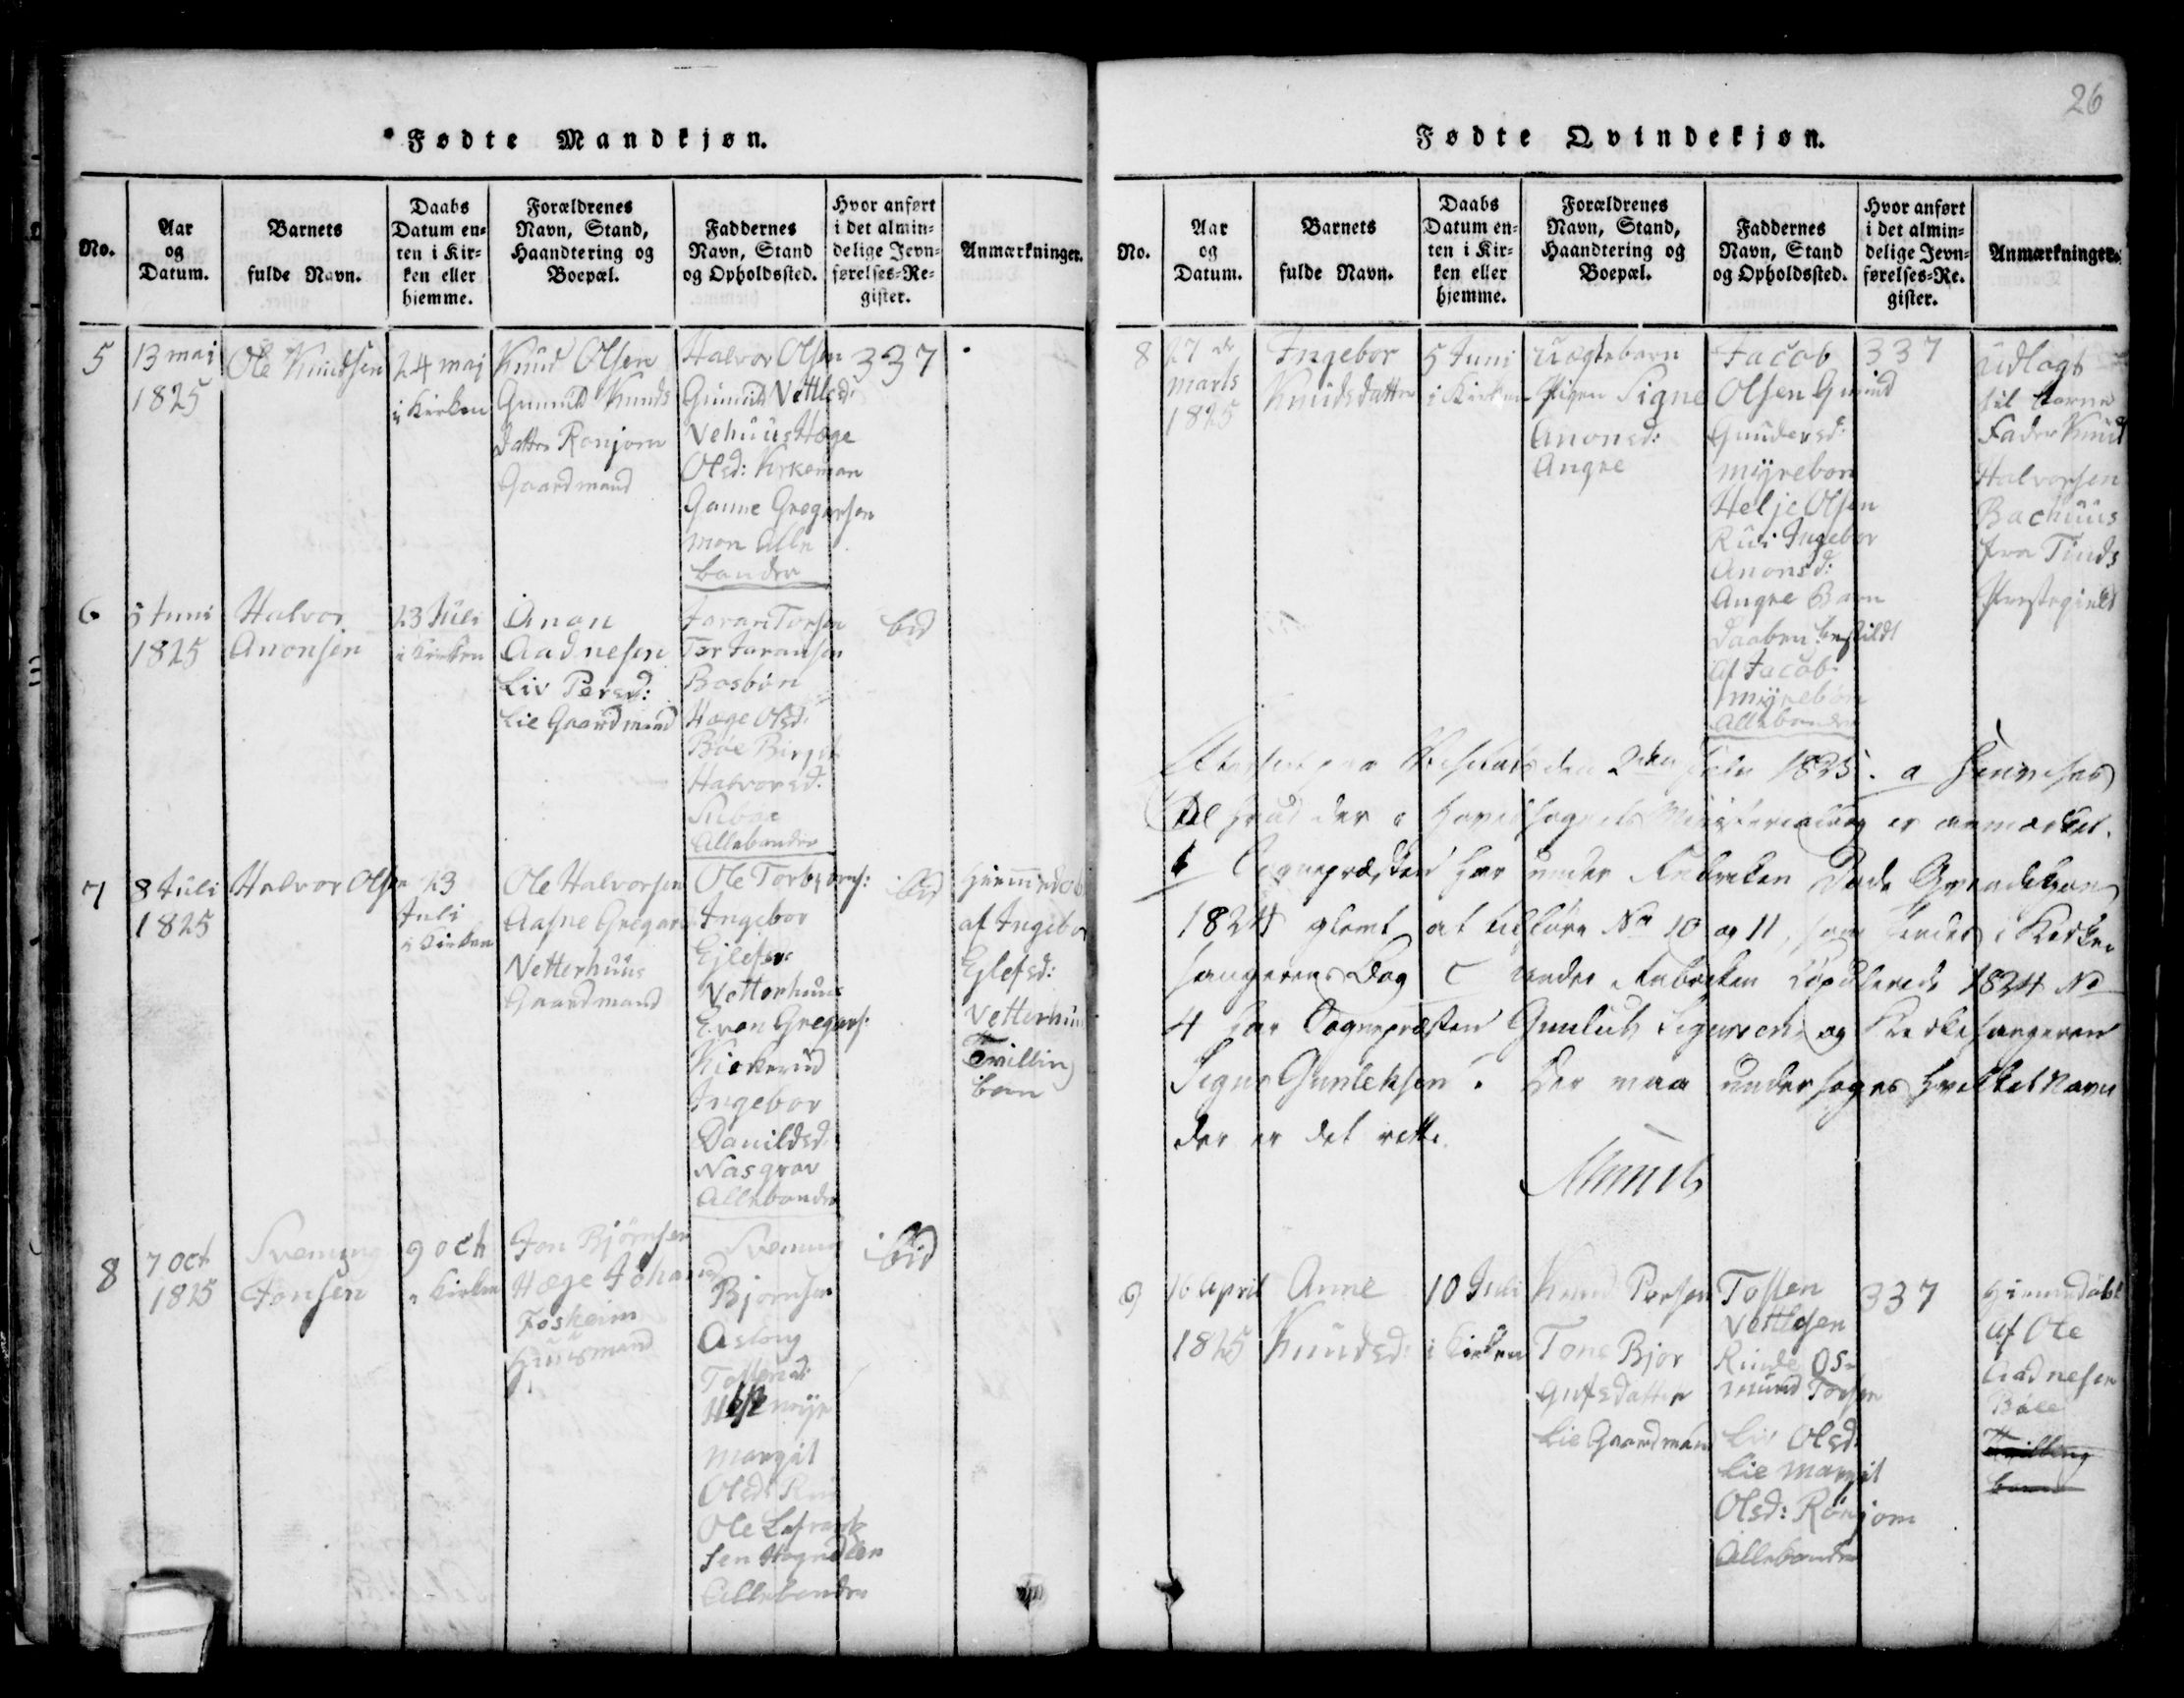 Fødte Mandkjøn.
No.
Aar
og
Datum.
Barnets
fulde Navn.
Daabs
Datum en-
ten i Kir-
ken eller
hjemme.
Forældrenes
Navn, Stand,
Haandtering og
Boepæl.
Faddernes
Navn, Stand
og Opholdssted.
Hvor anført
i det almin-
delige Jevn-
førelses-Re-
gister.
Anmærkninger.
5
13 maj
1825
Ole Knudsen
24 maj
i Kirken
Knud Olsen
Gunuld Knuds
datter Ronjom
Gaardmand
Halvor Olsen
Gunuld Vettlesd:
Vehuus Hæge
Olsd: Kirkemoen
Gunne Gregersen
Moen Alle
bønder
337
6
5 Juni
1825
Halvor
Anonsen
23 Juli
i Kirken
Anon
Aadnesen
Liv Persd:
Lie Gaardmand
Joran Torsen
Tor Joransen
Bosbøn
Hæge Olsd:
Bøe Birgit
Halvorsd:
Allebønder
bid
7
8 Juli
1825
Halvor Olsen
23
Juli
i Kirken
Ole Halvorsen
Aasne Gregars
Vetterhuus
Gaardmand
Ole Torbjørns:
Ingebor
Ejlefsd:
Vetterhuus
Even Gregars:
Kickerud
Ingebor
Danildsd:
Nasgrav
Allebønder
ibid
Hiemmedøb
af Ingebor
Eglefsd:
Vetterhuus
Tvilling
barn
8
7 Oct
1825
Svenung
Jonsen
9 Octb
i Kirken
Jon Bjørnsen
Hæge Johansd
Foskeim
Huusmand
Svenung
Bjørnsen
Asloug
Tostensd:
Margit
Olsd: Rui
Ole
sen
Allebønder
ibid
26
Fødte Qvindekjøn.
No.
Aar
og
Datum.
Barnets
fulde Navn.
Daabs
Datum en-
ten i Kir-
ken eller
hjemme.
Forældrenes
Navn, Stand,
Haandtering og
Boepæl.
Faddernes
Navn, Stand
og Opholdssted.
Hvor anført
i det almin-
delige Jevn-
førelses-Re-
gister.
Anmærkninger.
8
27de
Marts
1825
Ingebor
Knudsdatter
5 Juni
i Kirken
Uægtebarn
Pigen Signe
Anonsd:
Angre
Jacob
Olsen Gunild
Gundersd:
Myrebøn
Helje Olsen
Rui Ingebor
Anonsd:
Angre Barn
Daaben bestildt
af Jacob
Myrebøn
Allebønder
337
Udlagt
til barne
Fader Knud
Halvorsen
Bachuus
fra Tinds
Præstegield
den 2den 1825. a Henvises
til hvad der i Hovedsognets Ministerialbog er anmærket.
b Sognepræsten har under Rubrikken Døde Qvindekjøn
1824 glemt at tilføre No 10 og 11, som findes i Kirke
sangerens Bog c under Rubrikken Copulerede 1824 No
4 har Sognepræsten Gunleik Sigursen og Kirkesangeren
Sigur Gunleksen. Der maa undersøges hvilket Navn
der er det rette.
9
16 April
1825
Anne
Knudsd:
10 Juli
i Kirken
Knud Persen
Tone Bjør
gufsdatter
Lie Gaardmand
Tosten
Vettlesen
Rinde Os-
mund Torsen
Liv Olsd:
Lie Margit
Olsd: Rønjom
Allebønder
337
Hiemmedøbt
af Ole
Aadnesen
Bøle
Tvilling
barn